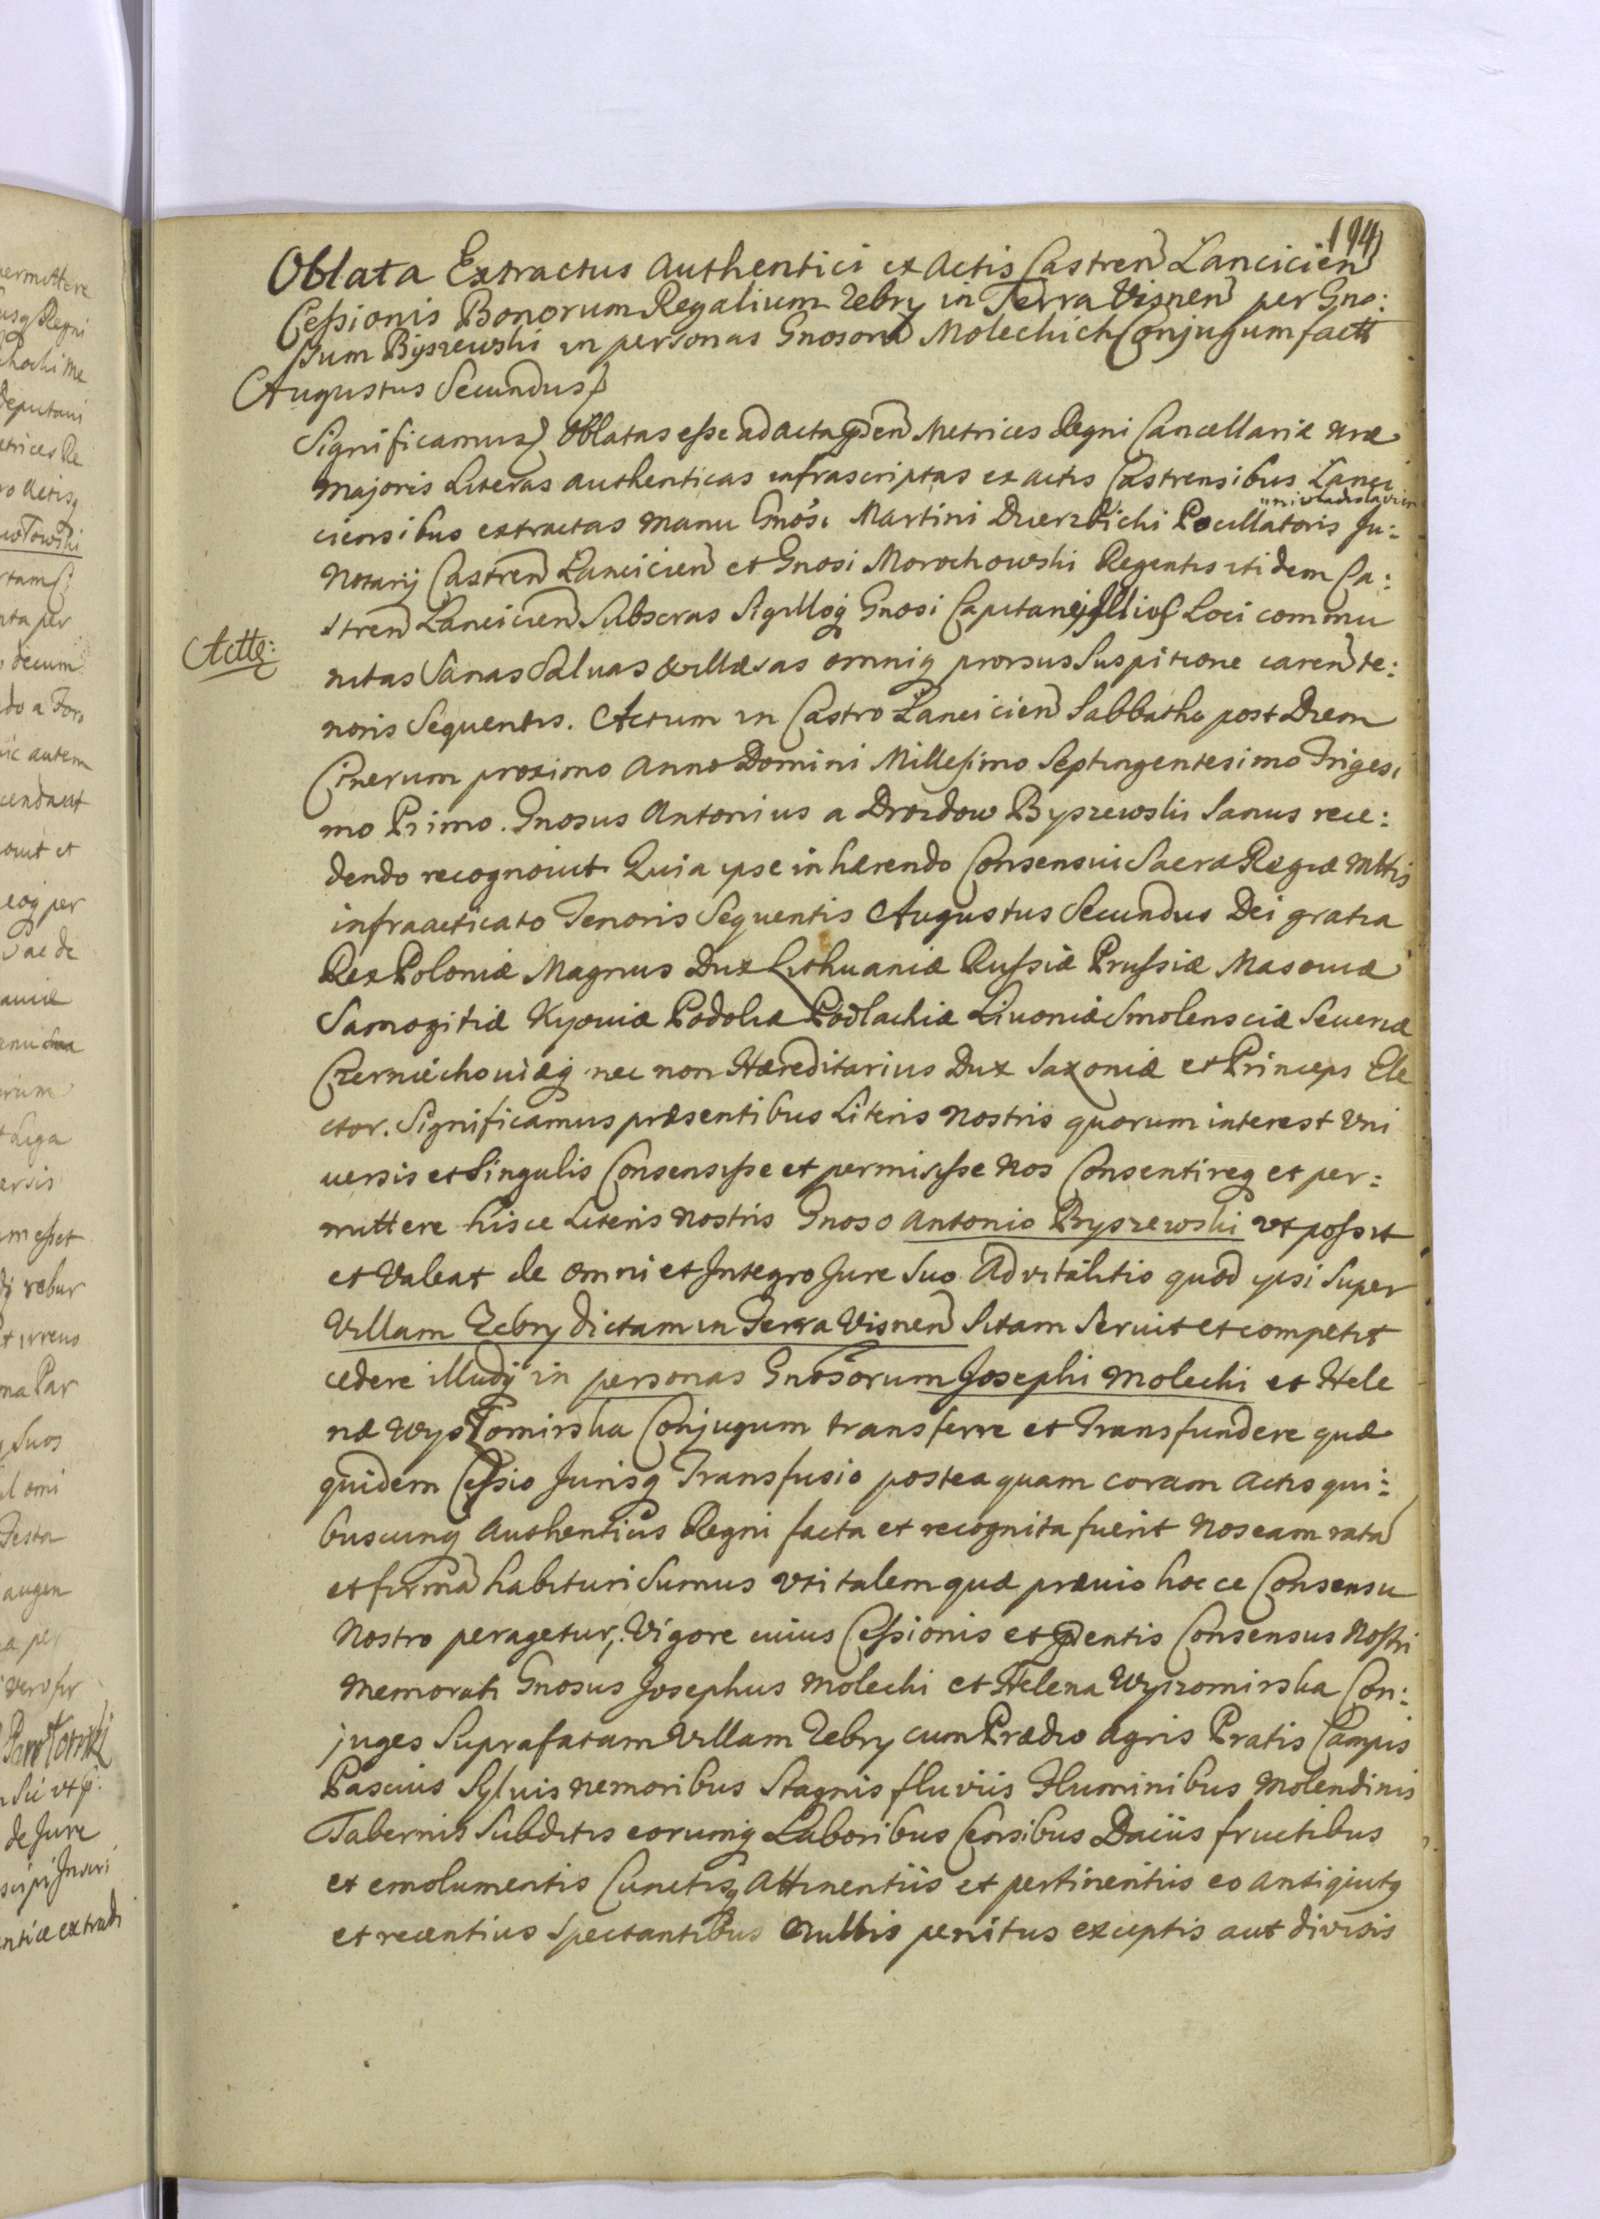 194
Oblata Extractus Authentici ex Actis Castren Lancicien
Cessionis Bonorum Regalium Zebry in Terra Visnen per Gno:
sum Byszewski in personas Gnosoru Molechich Conjugum fact
Augustus Secundus
Significamus Oblatas esse ad acta pden Metrices Regni Cancellariæ nræ
majoris Literas authenticas infrascriptas ex actis Castrensibus Lanci
niuladislavien
ciensibus extractas manu Gnosi Martini Dzierzbicki Pocillatoris Ju:
Notarij Castren Lancicien et Gnosi Morochowski Regentis itidem Ca:
stren Lancicien Subscras Sigilloq Gnosi Capitanej Illius Loci commu
Actte:
nitas Sanas Saluas & illæsas omniq prorsus Suspitione caren te:
noris Sequentis. Actum in Castro Lancicien Sabbatho post Diem
Cinerum proximo Anno Domini Millesimo Septingentesimo Trigesi
mo Primo. Gnosus Antonius a Drozdow Byszewski Sanus rece:
dendo recognovit Quia ipse inhærendo Consensui Sacræ Regiæ Mttis
infraacticato Tenoris Sequentis Augustus Secundus Dei gratia
Rex Poloniæ Magnus Dux Lithuaniæ Russiæ Prussiæ Masouiæ
Samogitiæ Kyouiæ Podoliæ Podlachiæ Liuoniæ Smolensciæ Seueriæ
Czerniechouiæq nec non Hæreditarius Dux Saxoniæ et Princeps Ele
ctor. Significamus præsentibus Literis Nostris quorum interest Vni
uersis et Singulis Consensisse et permisisse Nos Consentireq et per:
mittere hisce Literis Nostris Gnoso Antonio Byszewski vt possit
et Valeat de omni et Integro Jure Suo Advitalitio quod ipsi Super
Villam Zebry dictam in Terra Visnen Sitam Seruit et competit
cedere illudq in personas Gnosorum Josephi Molechi et Hele
næ Wyszomirska Conjugum transferre et Transfundere quæ
quidem Cessio Jurisq Transfusio postea quam coram Actis qui:
buscunq Authenticis Regni facta et recognita fuerit Nos eam rata
et firma habituri Sumus vti talem quæ præuio hocce Consensu
Nostro peragetur, Vigore cuius Cessionis et pdentis Consensus Nostri
Memorati Gnosus Josephus Molechi et Helena Wyszomirska Con:
juges Suprafatam Villam Zebry cum Prædio Agris Pratis Campis
Pascuis Syluis Nemoribus Stagnis fluviis Fluminibus Molendinis
Tabernis Subditis eorumq Laboribus Censibus Daciis fructibus
et emolumentis Cunctisq Attinentiis et pertinentiis eo antiquitq
et recentius Spectantibus Nullis penitus exceptis aut divisis